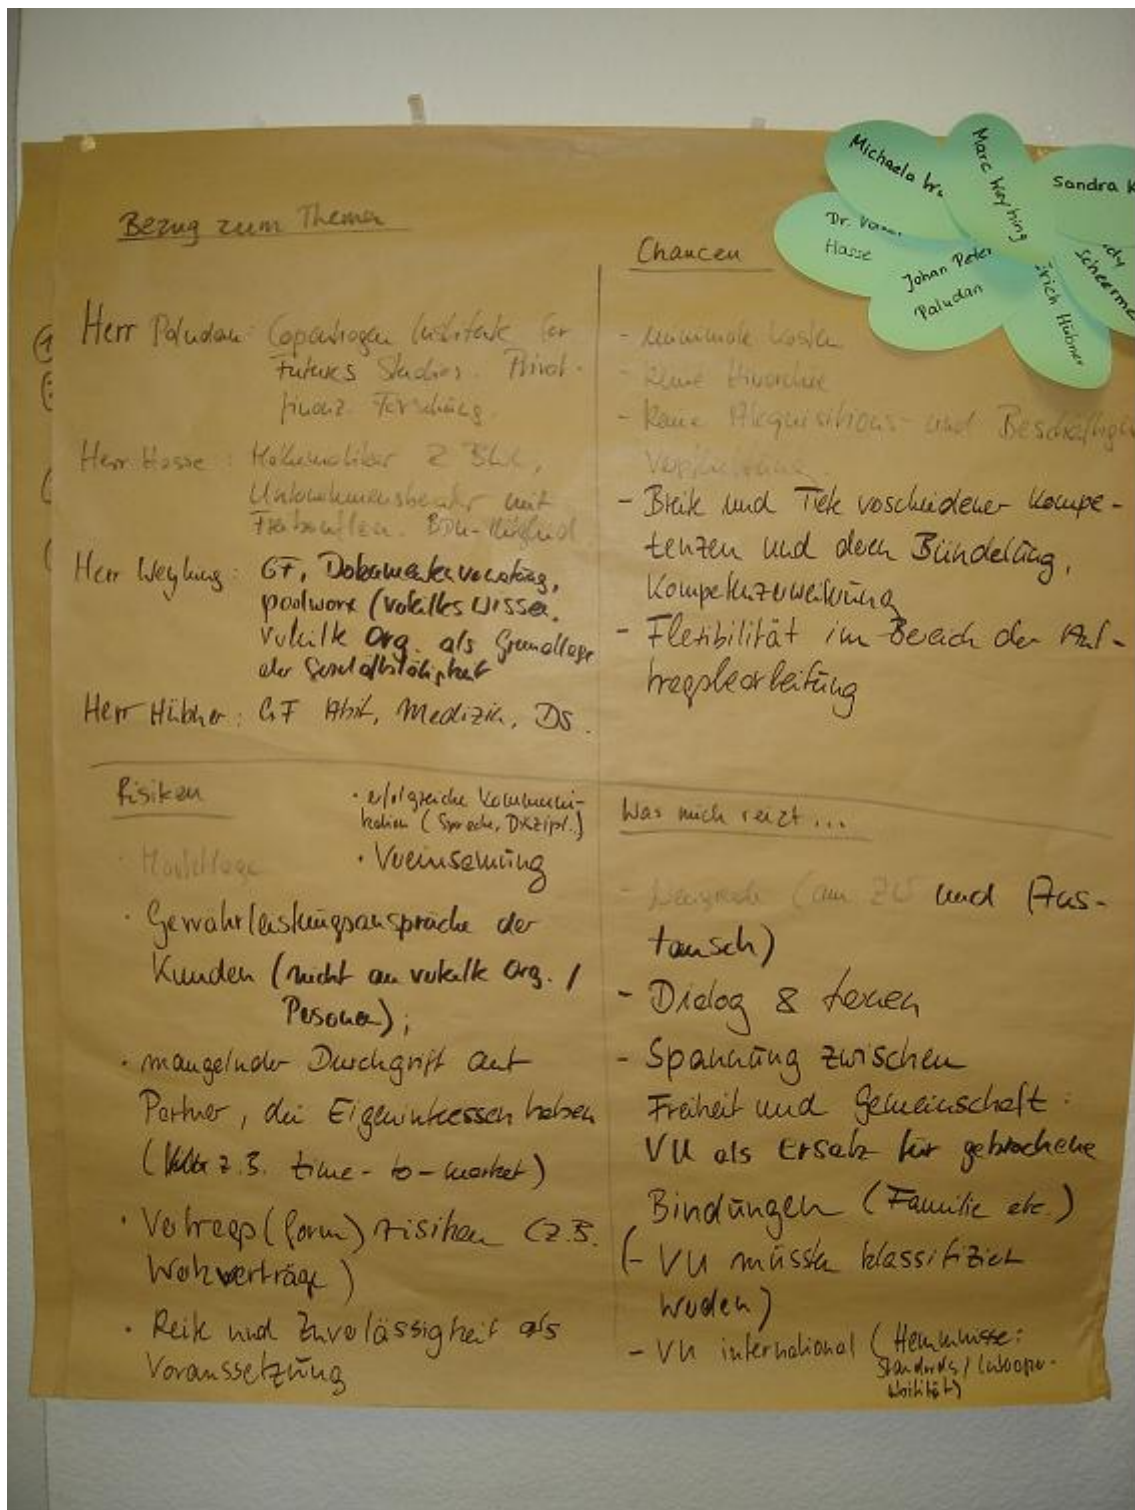 Bezug zum Thema
Herr Paludan: Copenhagen Institute for
Futures Studies. Privat-
finanz. Forschung.
Herr Hasse: Mathematiker
Unternehmensberater mit
BDU-Mitglied
Herr Weyhing: GF, Dokumentenverwaltung,
poolworx (verteiltes Wissen,
verteilte Org. als Grundlage
der Geschäftstätigkeit
Herr Hübner: GF Abit, Medizin, DS.
Chancen
- minimale Kosten
- keine Hierarchie
- keine Akquisitions- und
- Breite und Tiefe verschiedener Kompe-
tenzen und deren Bündelung,
Kompetenzerweiterung
- Flexibilität im Bereich der Auf-
tragsbearbeitung
Michaela
Marc Weyhing
Sandra K
Dr.
Hasse
Johan Peter
Paludan
Hübner
Risiken
· erfolgreiche Kommuni-
kation (Sprache, Diszipl.)
· Marktlage
· Vereinsamung
· Gewährleistungsansprüche der
Kunden (nicht an verteilte Org. /
Personen);
· mangelnder Durchgriff auf
Partner, die Eigeninteressen haben
(z.B. time-to-market)
· Vertrags(form)risiken (z.B.
Werkverträge)
· Reife und Zuverlässigkeit als
Voraussetzung
Was mich reizt ...
- und Aus-
tausch)
- Dialog & Lernen
- Spannung zwischen
Freiheit und Gemeinschaft:
VU als Ersatz für gebrochene
Bindungen (Familie etc.)
(- VU müssen klassifiziert
werden)
- VU international (Hemmnisse:
Standards / Interoper-
abilität)